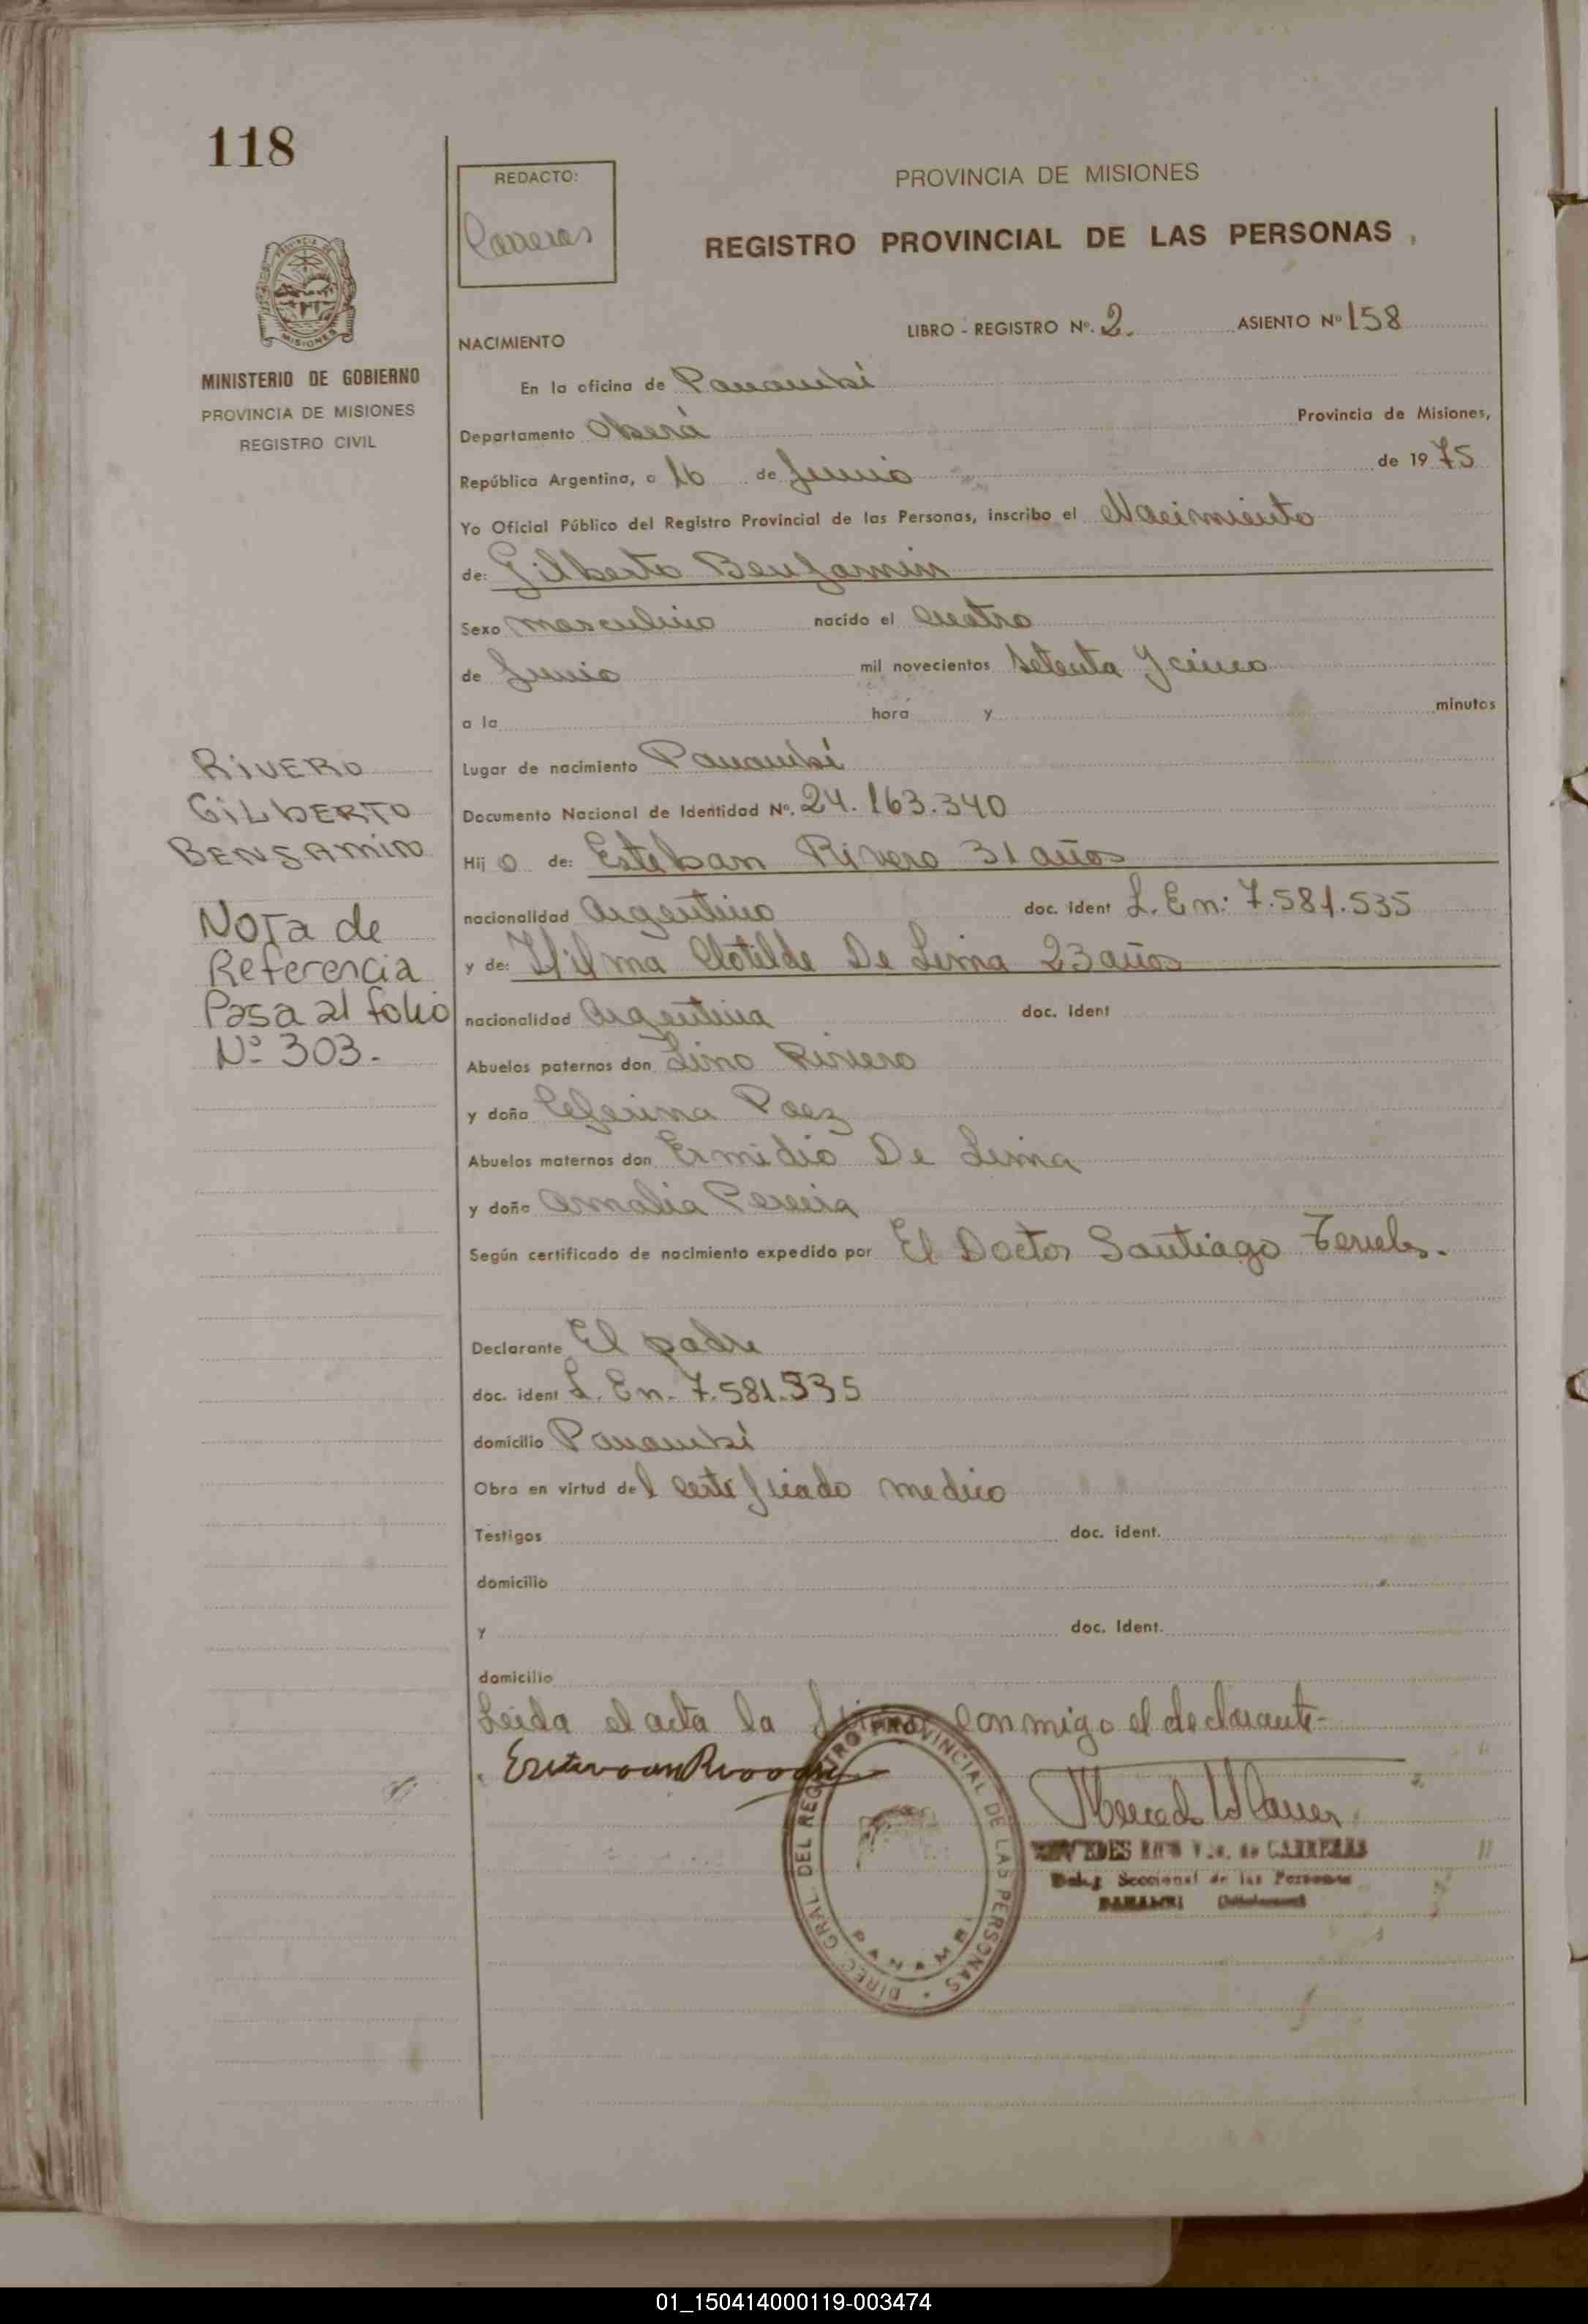 118
REDACTO:
Carreras
PROVINCIA DE MISIONES
REGISTRO PROVINCIAL DE LAS PERSONAS
MISIONES
MINISTERIO DE GOBIERNO
PROVINCIA DE MISIONES
REGISTRO CIVIL
NACIMIENTO
LIBRO - REGISTRO Nº. 2. ASIENTO Nº 158
En la oficina de Panambí
Departamento Oberá Provincia de Misiones,
República Argentina, a 16 de Junio de 1975
Yo Oficial Público del Registro Provincial de las Personas, inscribo el Nacimiento
de: Gilberto Benjamin
Sexo masculino nacido el cuatro
de Junio mil novecientos setenta y cinco
a la hora y minutos
Lugar de nacimiento Panambí
Documento Nacional de Identidad Nº. 24.163.340
Hij o de: Esteban Rivero 31 años
nacionalidad Argentino doc. ident L. En: 7.581.535
y de: Hilma Clotilde De Lima 23 años
nacionalidad Argentina doc. ident
Abuelos paternos don Lino Rivero
y doña Ceferina Paez
Abuelos maternos don Ermidio De Lima
y doña Amalia Pereira
Según certificado de nacimiento expedido por El Doctor Santiago
Declarante El padre
doc. ident L. En. 7.581.535
domicilio Panambí
Obra en virtud del certificado medico
Testigos doc. ident.
domicilio
y doc. ident.
domicilio
Leida el acta la firma conmigo el declarante-
RIVERO
GILBERTO
BENJAMIN
Nota de
Referencia
Pasa al folio
Nº 303.-
DIREC. GRAL. DEL REGISTRO PROVINCIAL DE LAS PERSONAS
PANAMBI
de CARRERAS
Deleg. Seccional de las Personas
PANAMBI
01_150414000119-003474